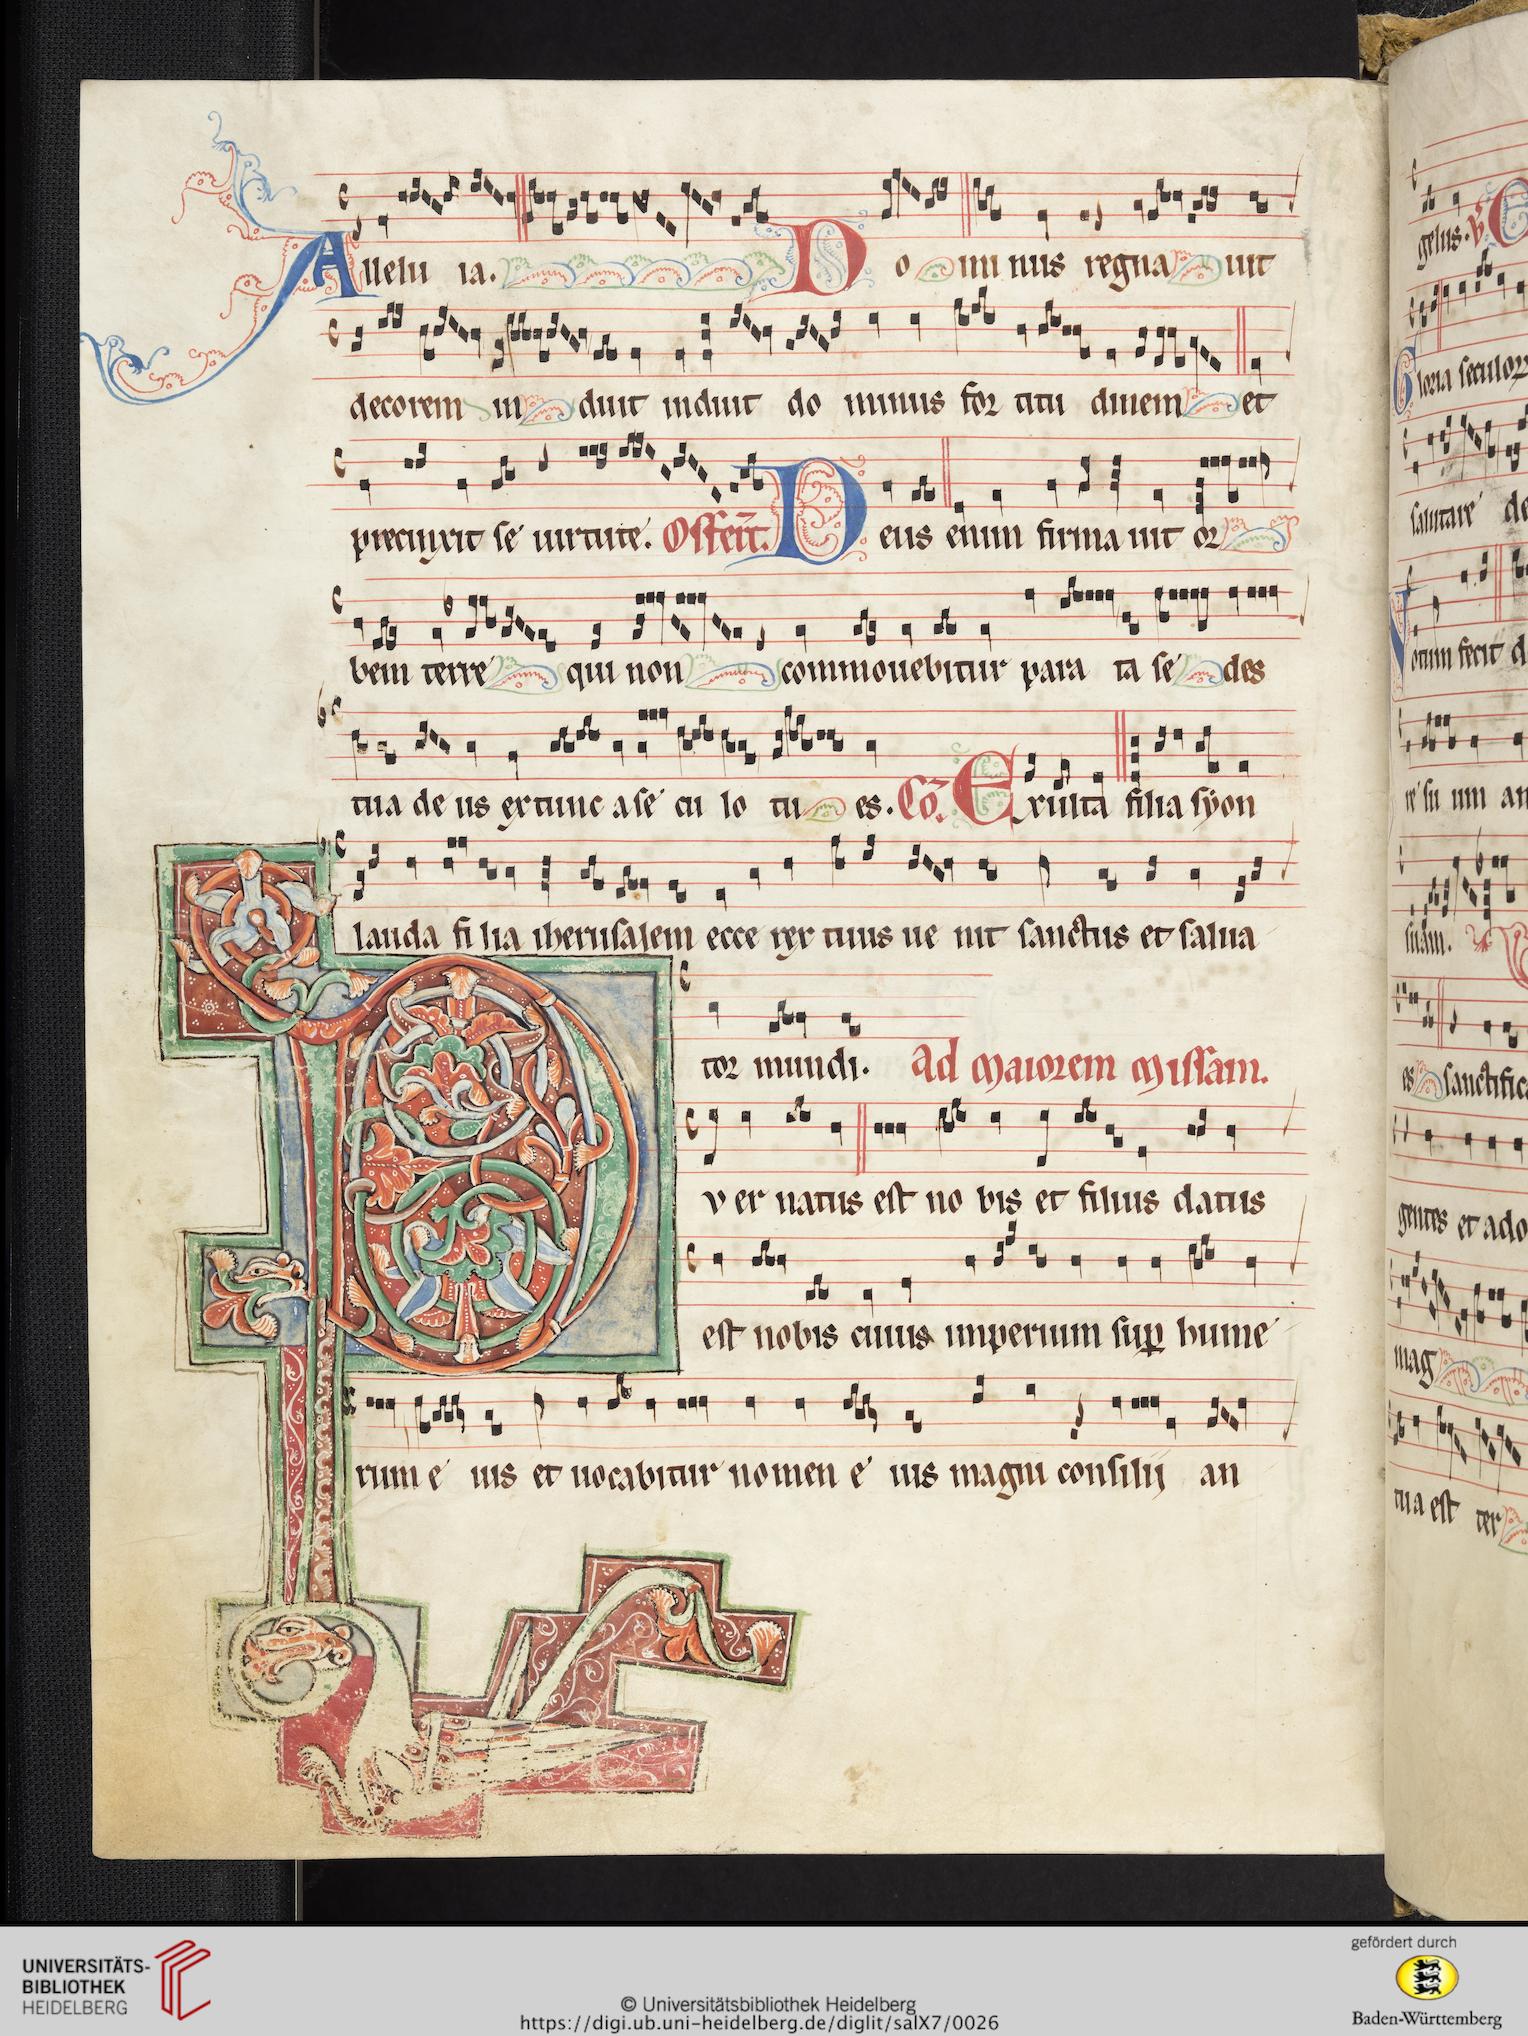 Allelu ia. D o mi nus regna uit
decorem in duit induit do minus for titu dinem et
precinxit se uirtute. Offert. D eus enim firma uit or
bem terre qui non commouebitur para ta se des
tua de us ex tunc a se cu lo tu es. Co. E xulta filia syon
lauda fi lia iherusalem ecce rex tuus ue nit sanctus et salua
tor mundi. Ad Maiorem Missam.
P v er natus est no bis et filius datus
est nobis cuius imperium sup hume
rum e ius et uocabitur nomen e ius magni consilij an
gelus. V
Gloria seculor
salutare de
Notum fecit d
re su um an
suam.
es sanctific
gentes et ado
mag
tua est ter
UNIVERSITÄTS-
BIBLIOTHEK
HEIDELBERG
© Universitätsbibliothek Heidelberg
https://digi.ub.uni-heidelberg.de/diglit/salX7/0026
gefördert durch
Baden-Württemberg